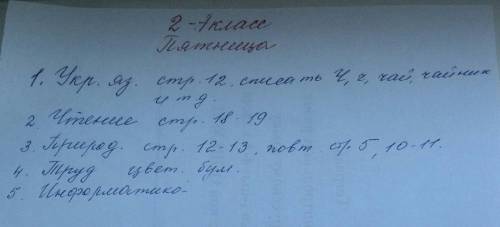 2-7 класс
Пятница
1. Укр. яз. стр. 12, списать Ч, ч, чай, чайник
и т д.
2. Чтение стр. 18-19
3. Природ. стр. 12-13, повт. стр 5, 10-11.
4. Труд цвет. бум.
5. Информатика-